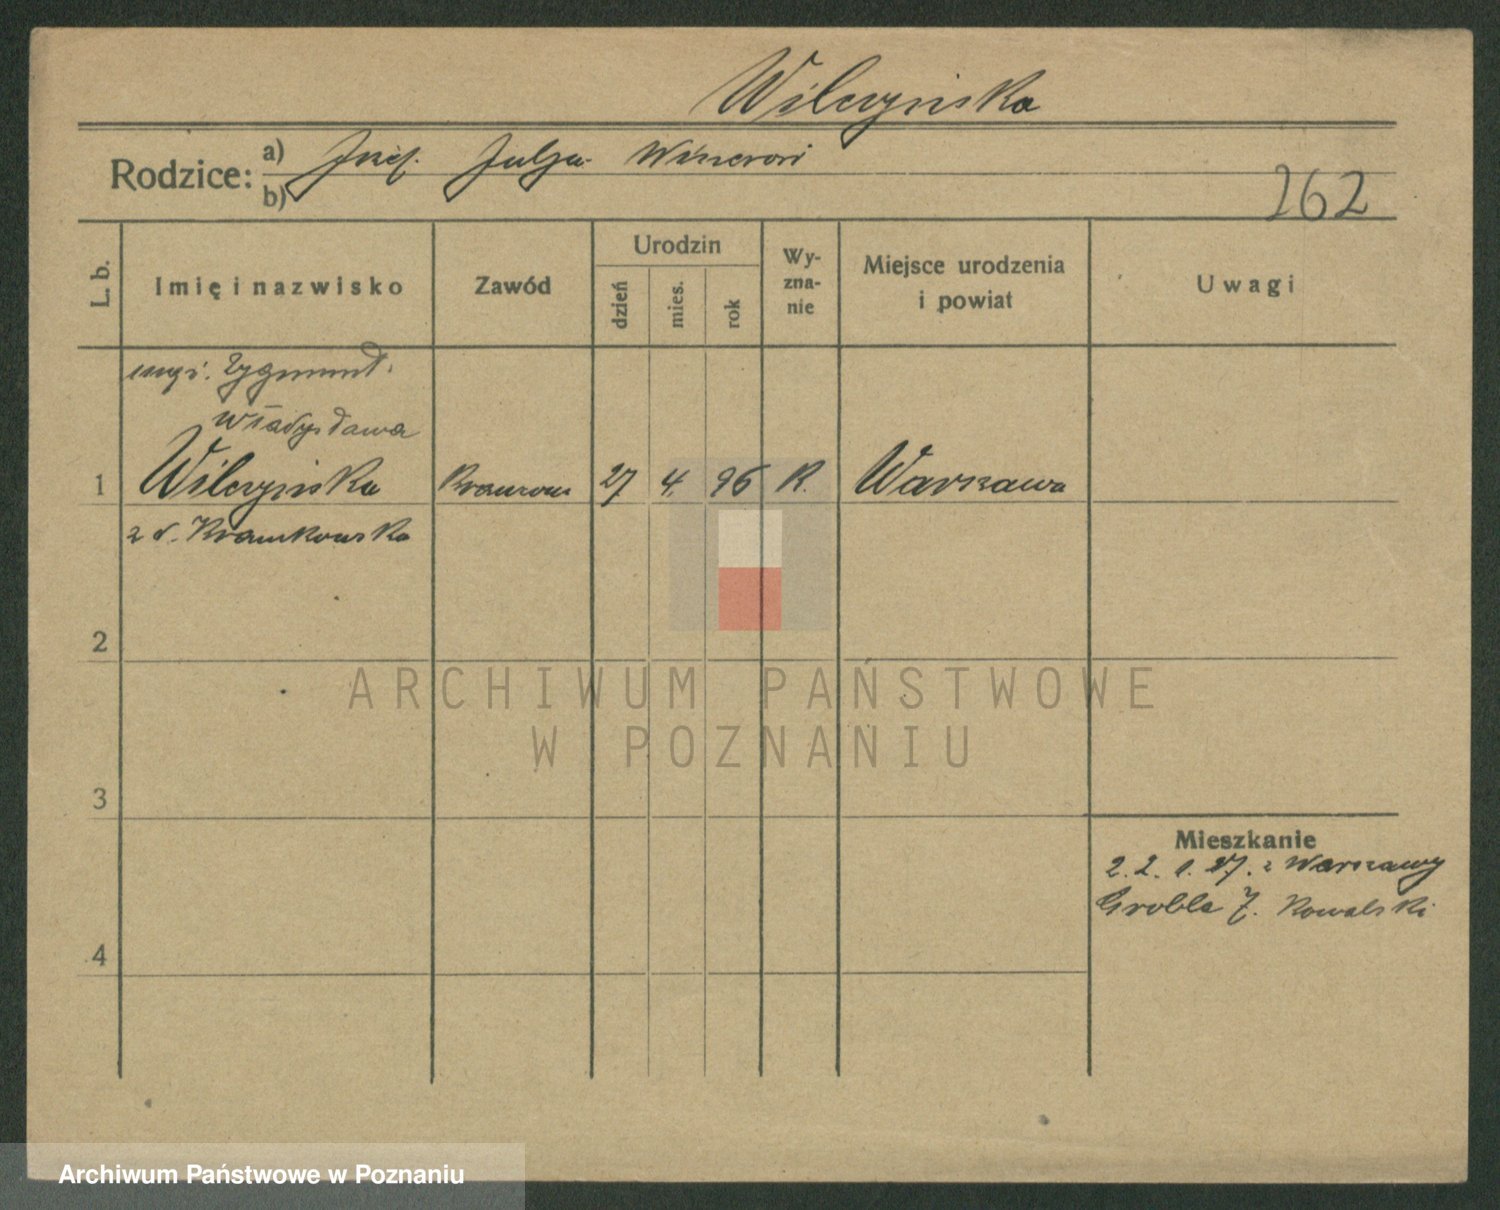 Wilczyńska
Rodzice: a) Józef. Julja
b)
262
L. b. Imię i nazwisko Zawód Urodzin dzień mies. rok Wy-zna-nie Miejsce urodzenia i powiat Uwagi
Zygmunt.
Władysława
1 Wilczyńska 27 4. 96 R. Warszawa
z d.
2
ARCHIWUM PAŃSTWOWE
W POZNANIU
3
Mieszkanie
2. 2. 1. 27. z Warszawy
Grobla 7. Kowalski
4
Archiwum Państwowe w Poznaniu